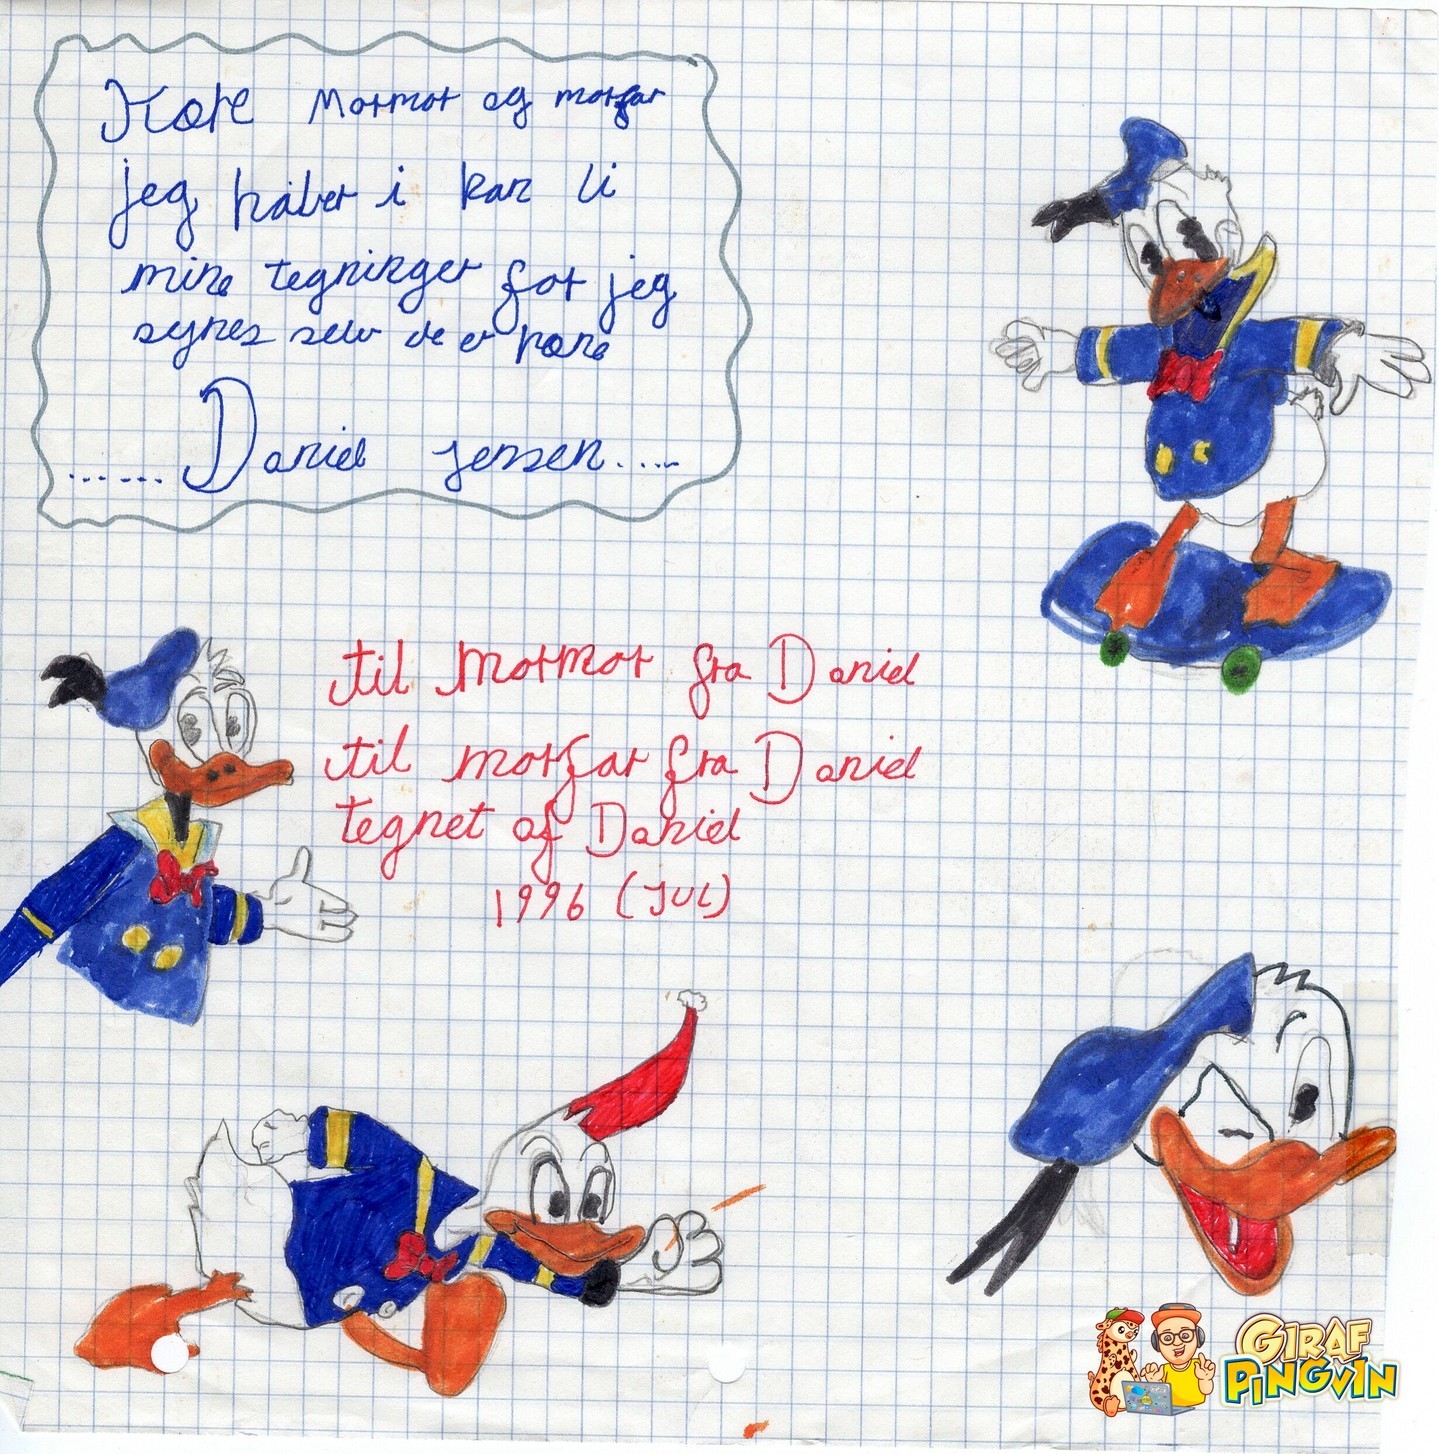 Kære Mormor og morfar
jeg håber i kan li
mine tegninger for jeg
synes selv de er pæne
......Daniel Jensen.....
til Mormor fra Daniel
til morfar fra Daniel
tegnet af Daniel
1996 (JUL)
GIRAF
PINGVIN